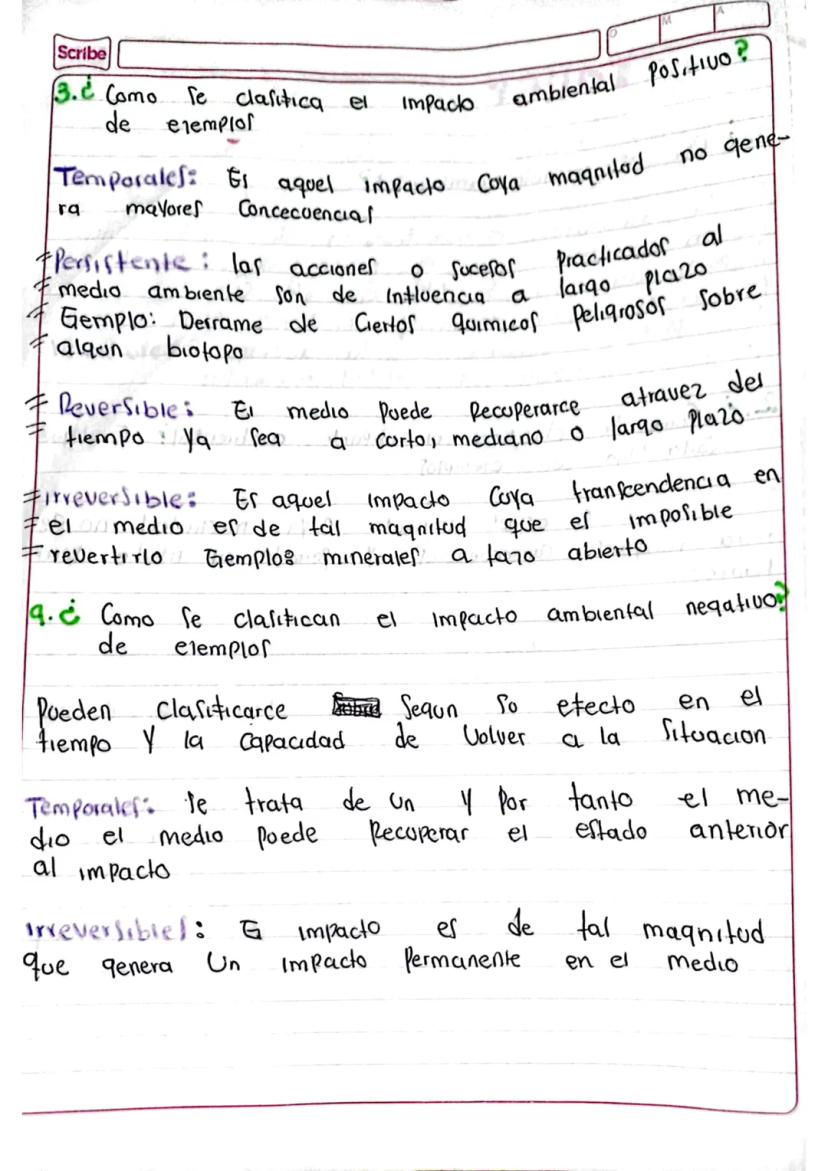 Scribe
D M A
3. ¿ Como se clasifica el impacto ambiental positivo?
de ejemplos
Temporales: Es aquel impacto Coya magnitod no gene-
ra mayores Concecuencias
Persistente: las acciones o sucesos Practicados al
medio ambiente son de influencia a largo plazo
Ejemplo: Derrame de Ciertos quimicos Peligrosos Sobre
algon biotopo
Reversible: El medio Puede Recuperarce atravez del
tiempo: Ya sea a corto, mediano o largo Plazo
irreversible: Es aquel impacto Coya transcendencia en
el medio es de tal magnitud que es imposible
revertirlo Ejemplos minerales a tazo abierto
9. ¿ Como se clasifican el impacto ambiental negativo?
de ejemplos
Pueden Clasificarce Segun So efecto en el
tiempo Y la Capacidad de Volver a la Situacion
Temporales: Se trata de Un Y Por tanto el me-
dio el medio Poede Recuperar el estado anterior
al impacto
irreversibles: E impacto es de tal magnitod
que genera Un impacto Permanente en el medio